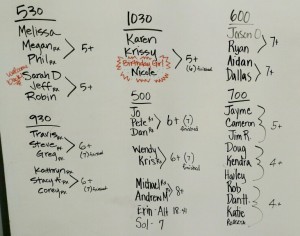 530
Melissa
Megan PR
Phil PR
5+
Welcome Back
Sarah D
Jeff PR
Robin
5+
930
Travis PR
Steve PR
Greg PR
6+
(7) finished
Kathryn PR
Stacy H PR
Corey PR
6+
(7) finished
1030
Karen
Krissy
Birthday Girl
Nicole
5+
(6) finished
500
Jo
Pete PR
Dan PR
6+ (7)
finished
Wendy
Kris PR
6+ (7)
finished
Michael PR
Andrew M
8+
Erin - Alt
Sol - 7
600
Jason O
Ryan
7+
Aidan
Dallas
7+
700
Jayme
Cameron
Jim R.
5+
Doug
Kendra
Hailey
4+
Rob
Dan H.
Katie
Rebecca
4+